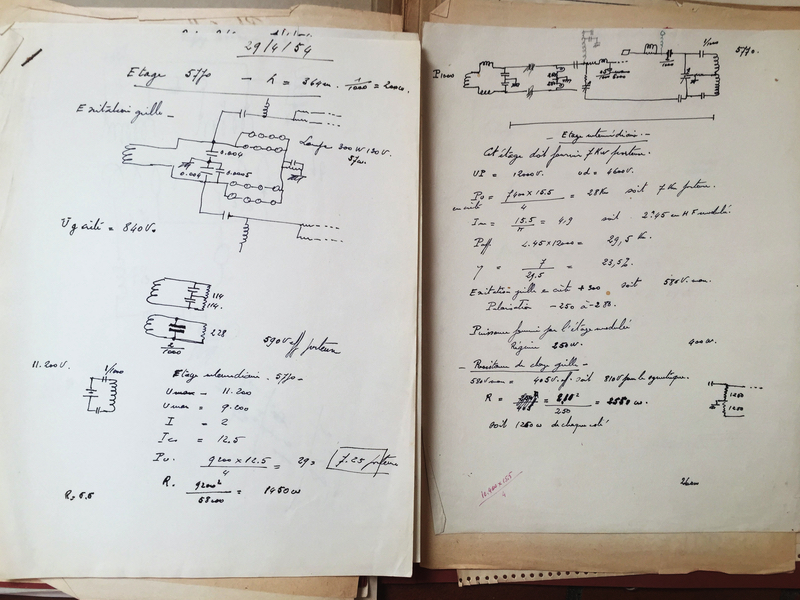 29/4/54
Etage 5770 - λ = 364m. 1/1000 = 200w.
Exitation grille -
Lampe 300W 130V.
0.004
0.004 0.0005
Ug crête = 840V.
114
114.
228
2/1000
590V eff porteuse
11.200V.
1/1000
Etage intermediaire. 5770-
Umax - 11.200
Umax = 9.200
I = 2
Ia = 12.5
Po. 9200 x 12.5 / 4 = 29, 7.25 porteuse
R. 9200² / 58000 = 1450 w
R = 5.5
P1000
1/1000
5770.
- Etage intermédiaire. -
Cet étage doit fournir 7 Kw porteuse.
UP = 12000V. ud = 4600V.
Po = 7400 x 15.5 / 4 = 28Kw soit 7Kw porteuse.
en crête
Im = 15.5 / π = 4,9 soit 2.45 en HF modulée.
Paff 2.45x12000 = 29,5 Kw.
η = 7 / 29,5 = 23,5%.
Exitation grille en crête + 300 soit 580V max.
Polarisation - 250 à - 280.
Puissance fournie par l'étage modulée
Régime 250w. 400w.
- Résistance de charge grille -
580Vmax = 405V.eff. soit 810V par la symétrique.
R = 810² / 250 = 2550 w.
Soit 1250w de chaque coté
1250
1250